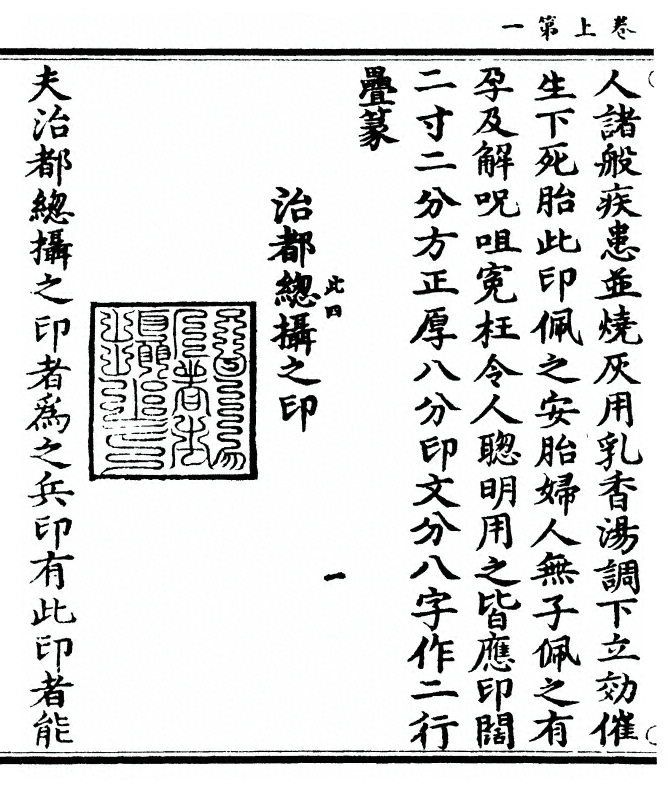 卷上第一
人諸般疾患並燒灰用乳香湯調下立効催
生下死胎此印佩之安胎婦人無子佩之有
孕及解呪咀寃枉令人聰明用之皆應印闊
二寸二分方正厚八分印文分八字作二行
疊篆
此四
一
治都總攝之印
夫治都總攝之印者爲之兵印有此印者能